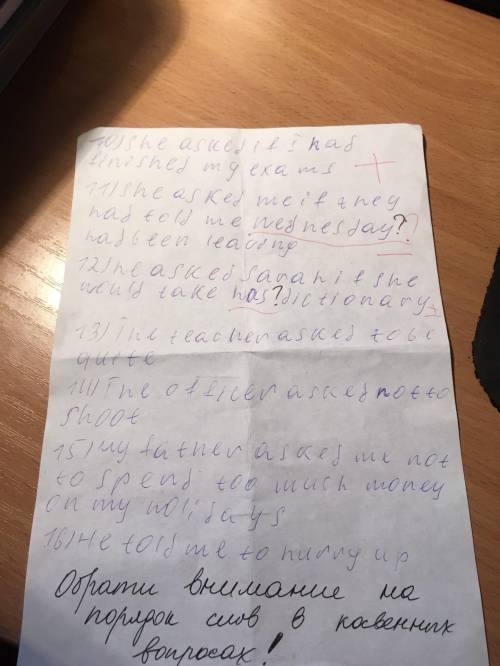 10) She asked if I had
finished my exams +
11) She asked me if they
had told me wednesday??
had been leaving
12) he asked Sarah if she
would take has? dictionary +
13) The teacher asked to be
quite
14) The officer asked not to
shoot
15) My father asked me not
to spend too much money
on my holidays
16) He told me to hurry up
Обрати внимание на
порядок слов в косвенных
вопросах!